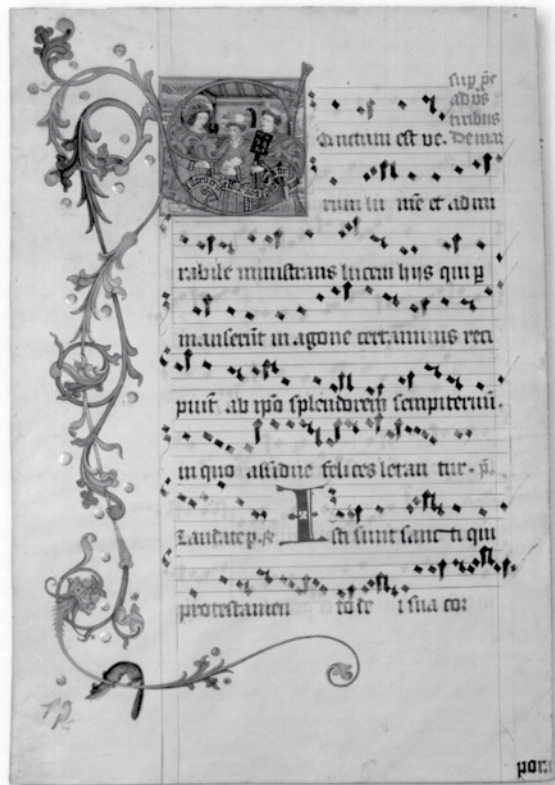 sup ps
ad vs
tiribus
Sanctum est ve. De mar
rum lu men et admi
rabile ministrans lucem hijs qui p
manserūt in agone certaminis reci
piūt ab ipo splendorem sempiternū.
in quo assidue felices letan tur. p̄.
Laudate p.
Isti sunt sanc ti qui
pro testamen to de i sua cor
por